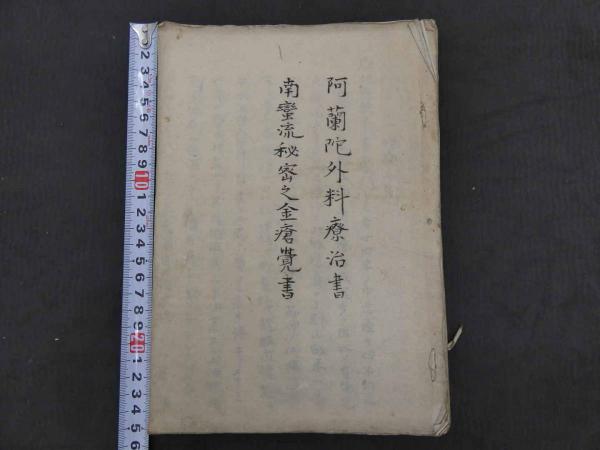 阿蘭陀外科療治書
南蛮流秘密之金瘡覚書
2
3
4
5
6
7
8
9
10
1
2
3
4
5
6
7
8
9
20
1
2
3
4
5